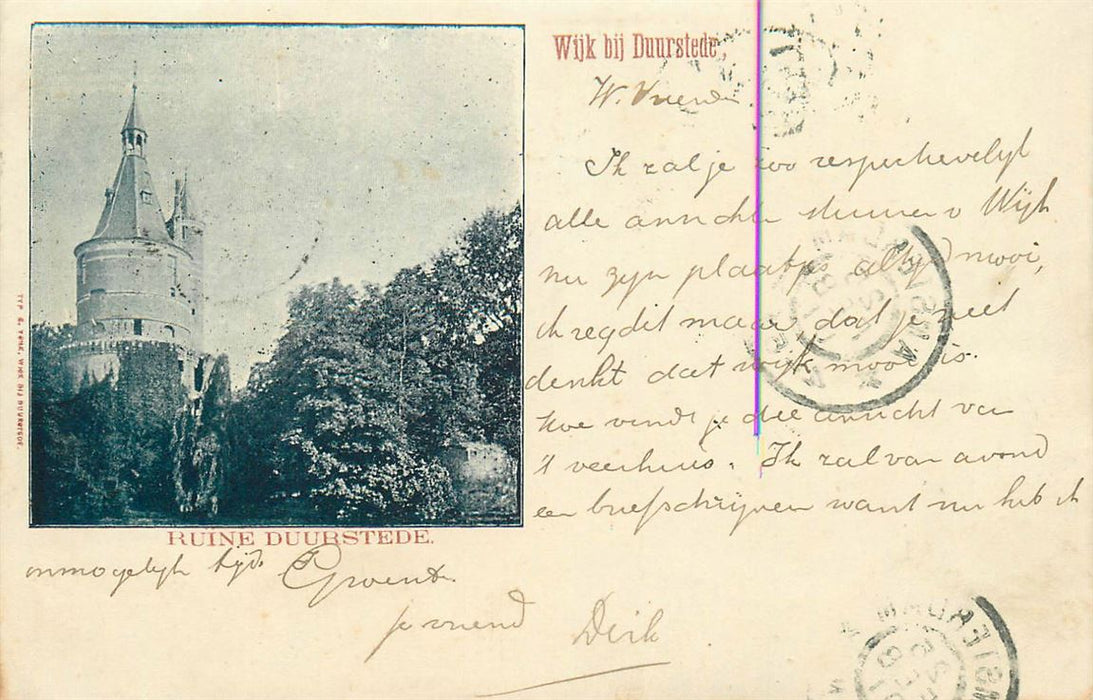 Wijk bij Duurstede,
W. Vriend
Ik zal je zoo respectievelijk
alle ansichten sturen v Wijk
nu zijn plaatjes altijd mooi,
ik zeg dit maar dat je niet
denkt dat wijk mooi is.
Hoe vindt je die ansicht van
't veerhuis. Ik zal van avond
een brief schrijven want nu heb ik
RUINE DUURSTEDE.
onmogelijk tijd. Groeten
je vriend Dirk
WIJK BIJ DUURSTEDE.
AMSTERDAM